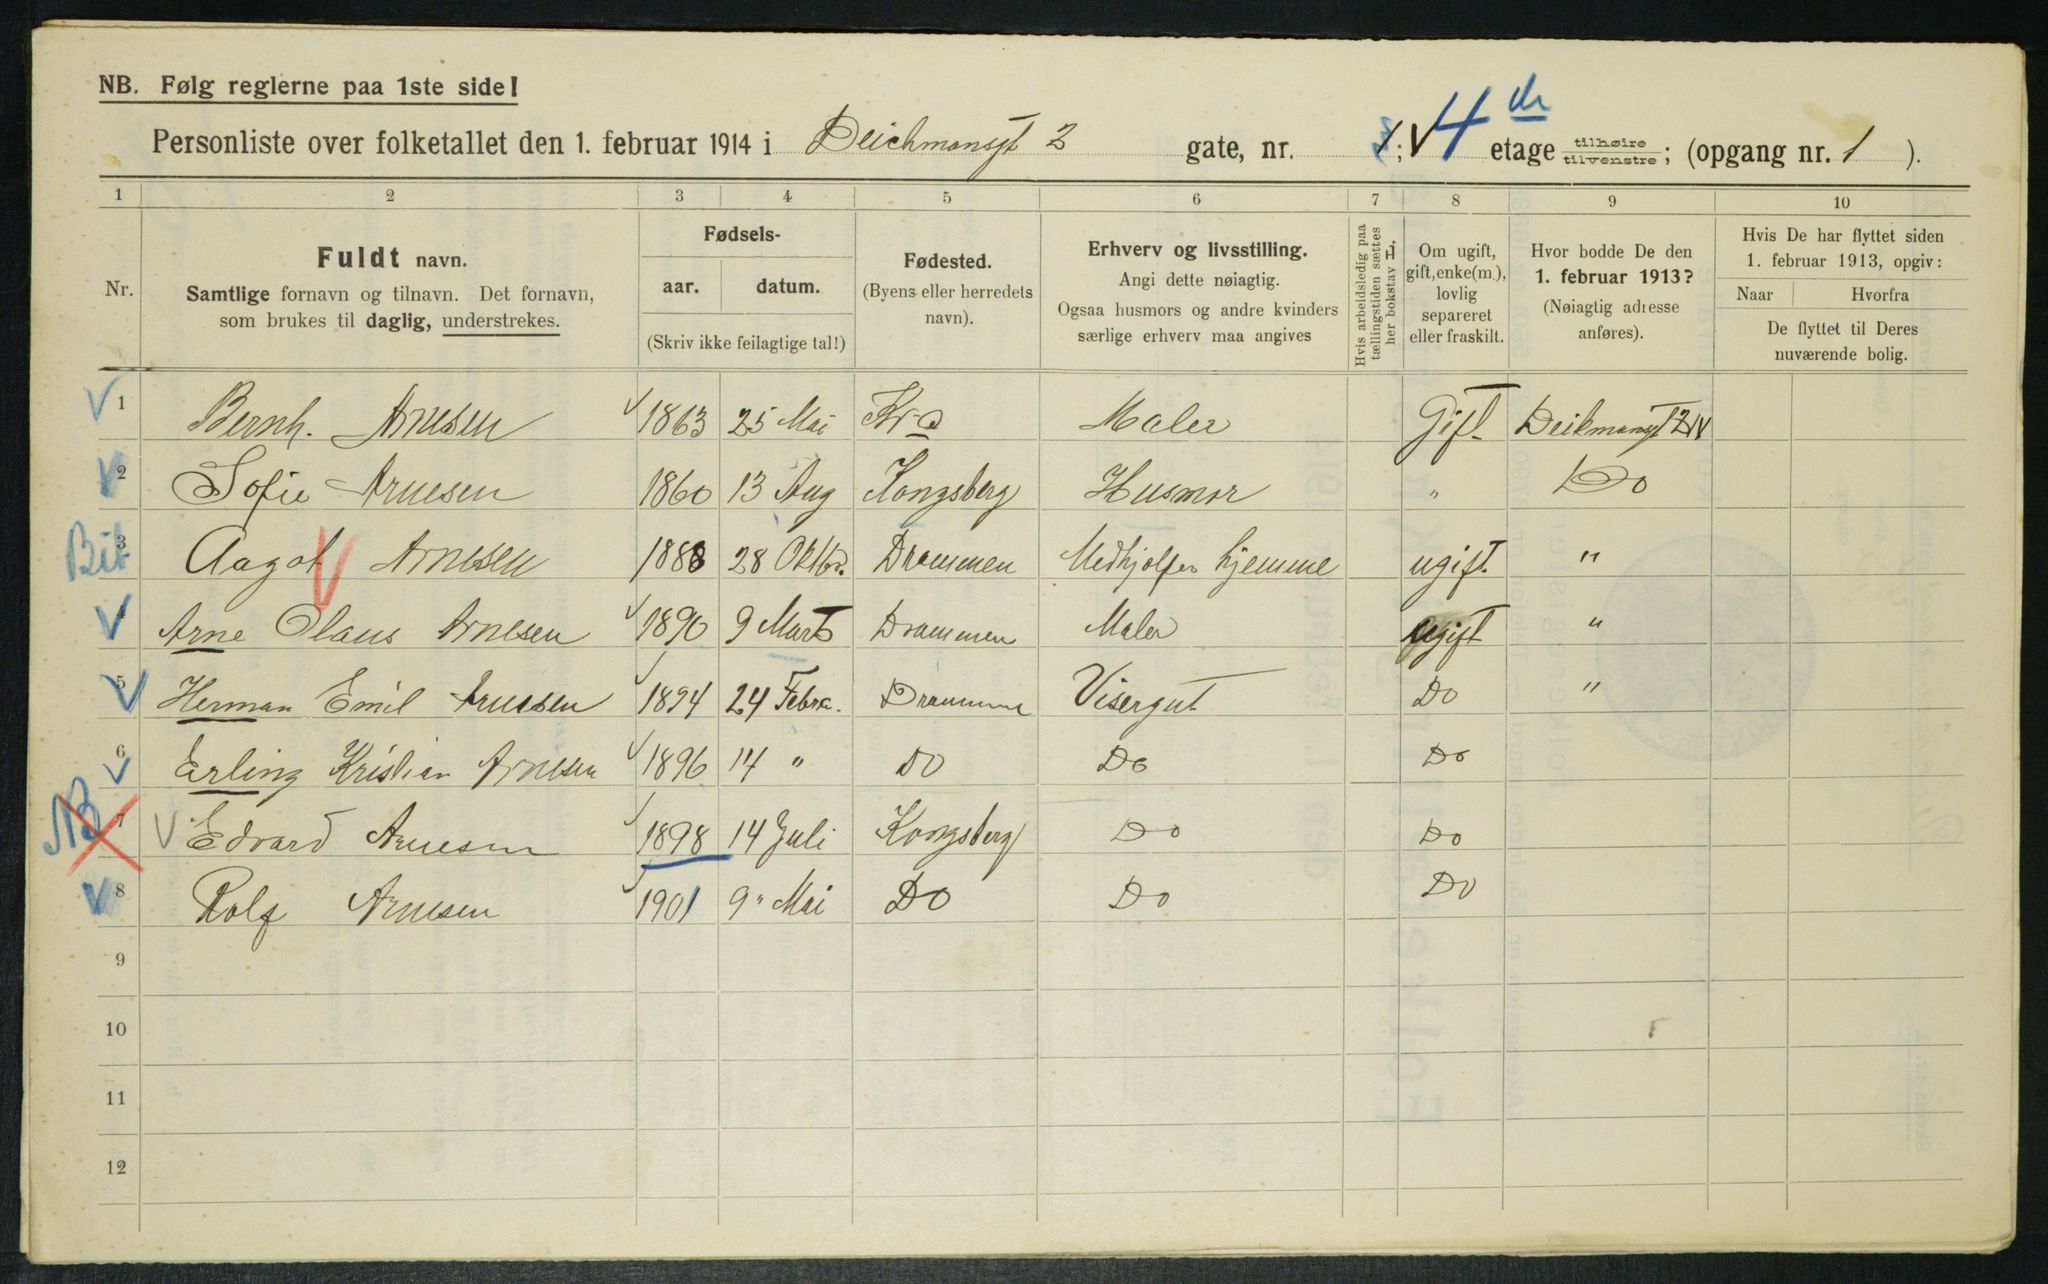 NB. Følg reglerne paa 1ste side!
Personliste over folketallet den 1. februar 1914 i Deichmansgt 2 gate, nr. 1; 4de etage tilhøire tilvenstre; (opgang nr. 1 ).
1 2 3 4 5 6 7 8 9 10
Nr.
Fuldt navn.
Samtlige fornavn og tilnavn. Det fornavn,
som brukes til daglig, understrekes.
Fødsels-
aar. datum.
(Skriv ikke feilagtige tal!)
Fødested.
(Byens eller herredets
navn).
Erhverv og livsstilling.
Angi dette nøiagtig.
Ogsaa husmors og andre kvinders
særlige erhverv maa angives
Hvis arbeidsledig paa
tællingstiden sættes
her bokstav L.
Om ugift,
gift, enke(m.),
lovlig
separeret
eller fraskilt.
Hvor bodde De den
1. februar 1913?
(Nøiagtig adresse
anføres).
Hvis De har flyttet siden
1. februar 1913, opgiv:
Naar Hvorfra
De flyttet til Deres
nuværende bolig.
1 Bernh. Arnesen 1863 25 Mai Kr-a Maler Gift Deikmansgt 2 IV
2 Sofie Arnesen 1860 13 Aug Kongsberg Husmor " Do
Bit 3 Aagot Arnesen 1888 28 Oktbr. Drammen Medhjælper hjemme ugift "
4 Arne Olaus Arnesen 1890 9 Marts Drammen Maler ugift "
5 Herman Emil Arnesen 1894 24 Febra. Drammen Visergut Do "
6 Erling Kristian Arnesen 1896 14 " Do Do Do
NB 7 Edvard Arnesen 1898 14 Juli Kongsberg Do Do
8 Rolf Arnesen 1901 9 " Mai Do Do Do
9
10
11
12